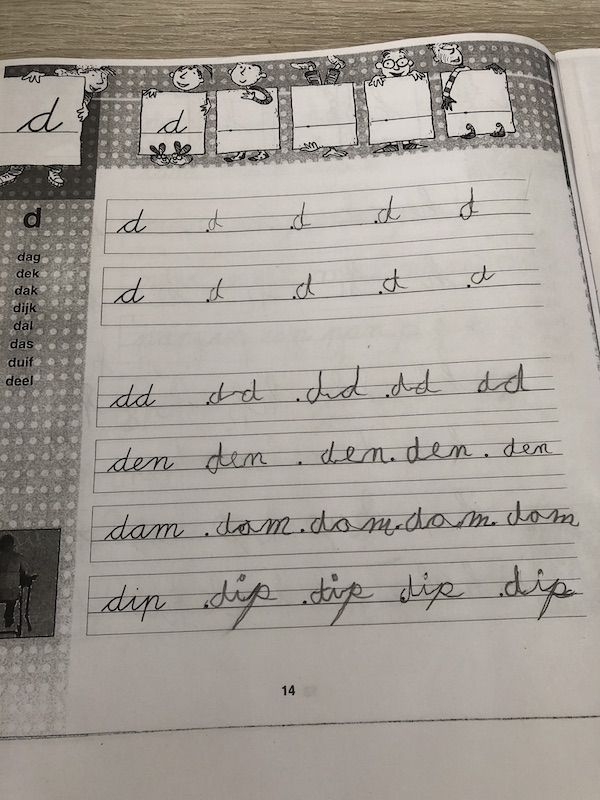 d d
d
dag
dek
dak
dijk
dal
das
duif
deel
d d d d d
d d d d d
dd dd dd dd dd
den den den den den
dam dam dam dam dam
dip dip dip dip dip
14